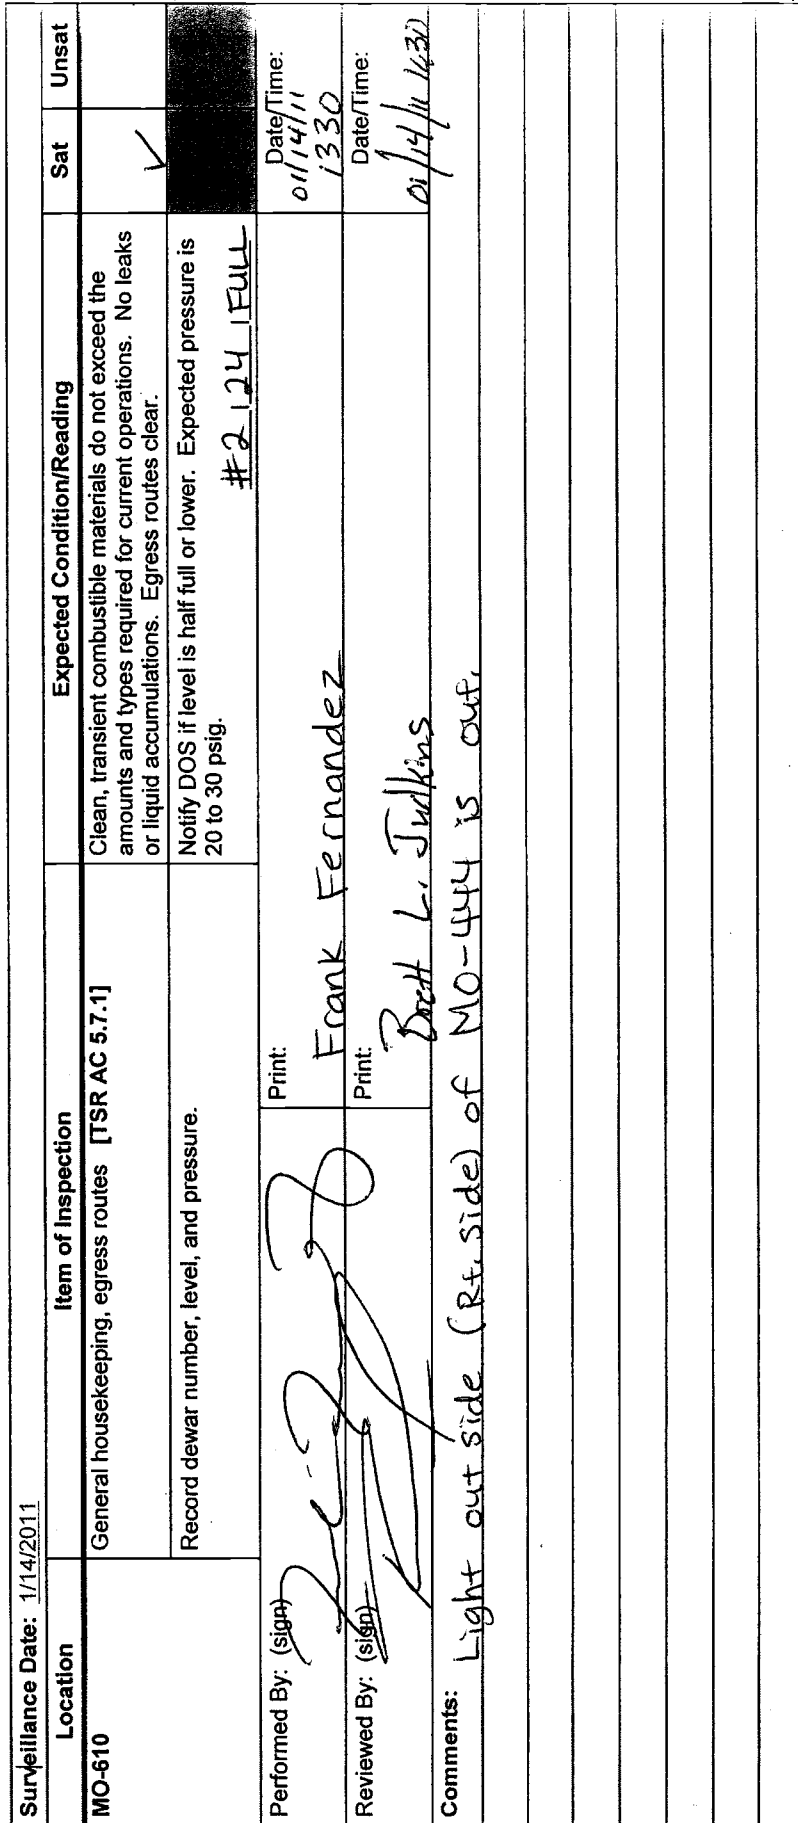 Surveillance Date: 1/14/2011
Location Item of Inspection Expected Condition/Reading Sat Unsat
MO-610 General housekeeping, egress routes [TSR AC 5.7.1] Clean, transient combustible materials do not exceed the
amounts and types required for current operations. No leaks
or liquid accumulations. Egress routes clear. ✓
Record dewar number, level, and pressure. Notify DOS if level is half full or lower. Expected pressure is
20 to 30 psig.
#2 | 24 | FULL
Performed By: (sign) Print: Date/Time:
Frank Fernandez 01/14/11
1330
Reviewed By: (sign) Print: Date/Time:
Brett L. Judkins 01/14/11 1630
Comments: Light outside (Rt. side) of MO-444 is out.